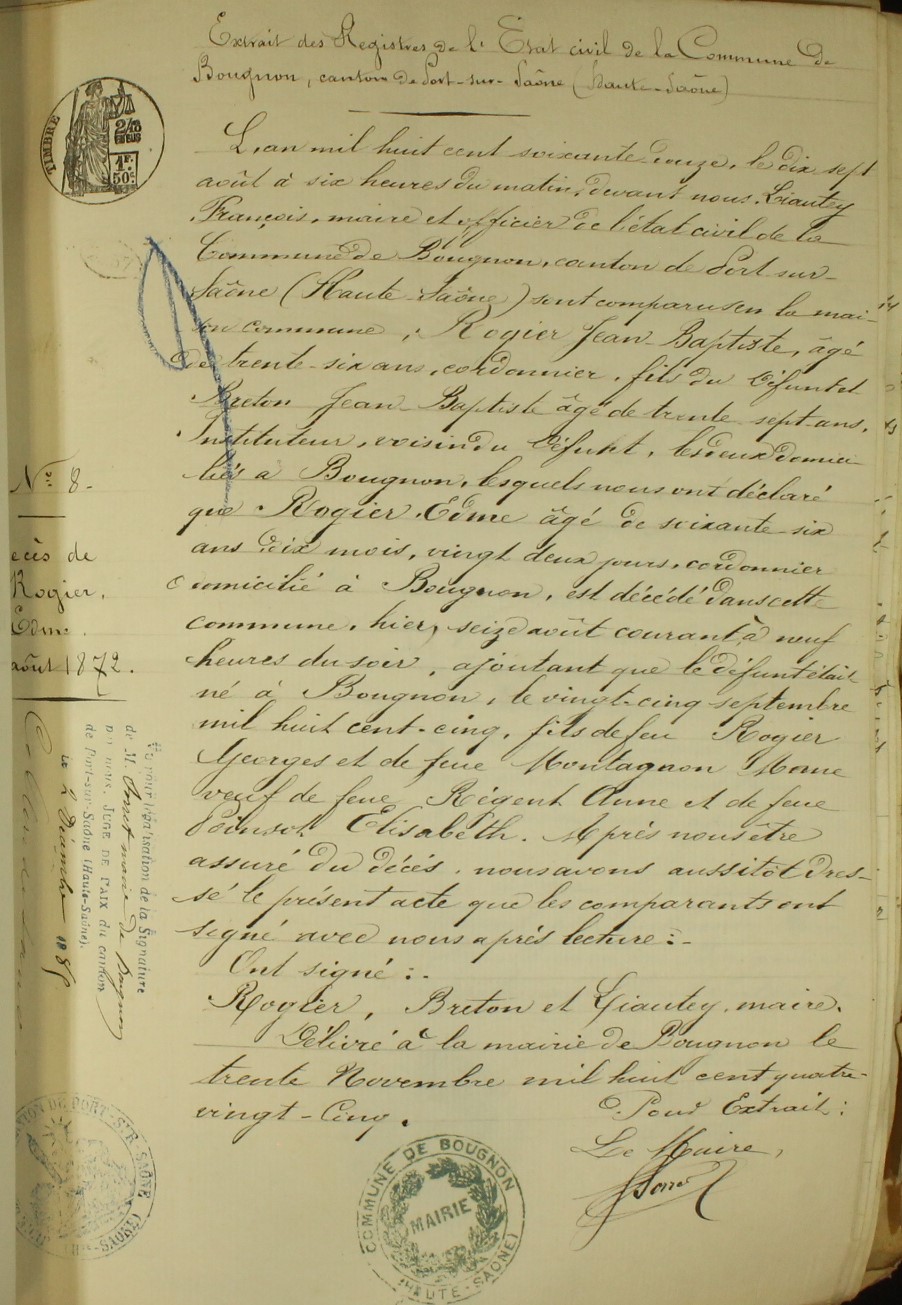 Extrait des Registres de l'Etat civil de la Commune de
Bougnon, canton de Port-sur-Saône (Haute-Saône)
TIMBRE
2/10
EN SUS
1F.
50c.
L'an mil huit cent soixante douze, le dix sept
août à six heures du matin, devant nous, Liautey
François, maire et officier de l'état civil de la
Commune de Bougnon, canton de Port sur-
Saône (Haute-Saône) sont comparus en la mai-
son commune, Rogier Jean-Baptiste, âgé
de trente-six ans, cordonnier, fils du défunt et
Breton Jean-Baptiste âgé de trente-sept ans,
Instituteur, voisin du défunt, les deux domici-
liés a Bougnon, lesquels nous ont déclaré
que Rogier Edme âgé de soixante-six
ans dix mois, vingt deux jours, cordonnier
domicilié à Bougnon, est décédé dans cette
commune, hier, seize août courant, à neuf
heures du soir, ajoutant que le défunt était
né à Bougnon, le vingt-cinq septembre
mil huit cent-cinq, fils de feu Rogier
Georges et de feue Montagnon
veuf de feue Régent Anne et de feue
Poinsot Elisabeth. Après nous être
assuré du décès, nous avons aussitôt dres-
sé le présent acte que les comparants ont
signé avec nous après lecture :-
Ont signé :-
Rogier, Breton et Liautey, maire.
Délivré à la mairie de Bougnon le
trente Novembre mil huit cent quatre-
vingt-Cinq.
Pour Extrait :
Le Maire,
N° 8.
ecès de
Rogier,
Edme.
août 1872.
Pour légalisation de la Signature
de M. maire de Bougnon
par nous, JUGE DE PAIX du canton
de Port-sur-Saône (Haute-Saône).
le 2 Décembre 1885
COMMUNE DE BOUGNON
MAIRIE
(HAUTE-SAÔNE)
CANTON DE PORT-SUR-SAÔNE